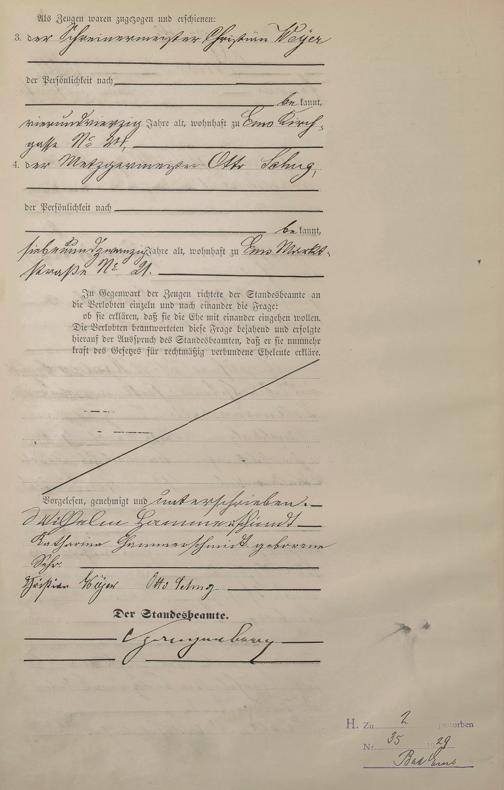 Als Zeugen waren zugezogen und erschienen:
3. der Schreinermeister Christian
der Persönlichkeit nach
be kannt,
vierundvierzig Jahre alt, wohnhaft zu Ems Kirch-
gasse No 21.
4. der Metzgermeister Otto
der Persönlichkeit nach
be kannt,
siebenundzwanzig Jahre alt, wohnhaft zu Ems Markt-
straße No. 21.
In Gegenwart der Zeugen richtete der Standesbeamte an
die Verlobten einzeln und nach einander die Frage:
ob sie erklären, daß sie die Ehe mit einander eingehen wollen.
Die Verlobten beantworteten diese Frage bejahend und erfolgte
hierauf der Ausspruch des Standesbeamten, daß er sie nunmehr
kraft des Gesetzes für rechtmäßig verbundene Eheleute erkläre.
Vorgelesen, genehmigt und unterschrieben.
Wilhelm Hammerschmidt
Katharina Hammerschmidt geborene
Christian Otto
Der Standesbeamte.
H. Zu 2 gestorben
Nr. 35 1929
Bad Ems